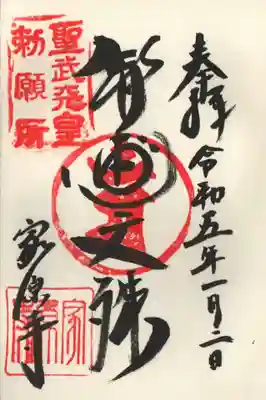 奉拝 令和五年一月二日
智恵文殊
聖武天皇
勅願所
家原寺